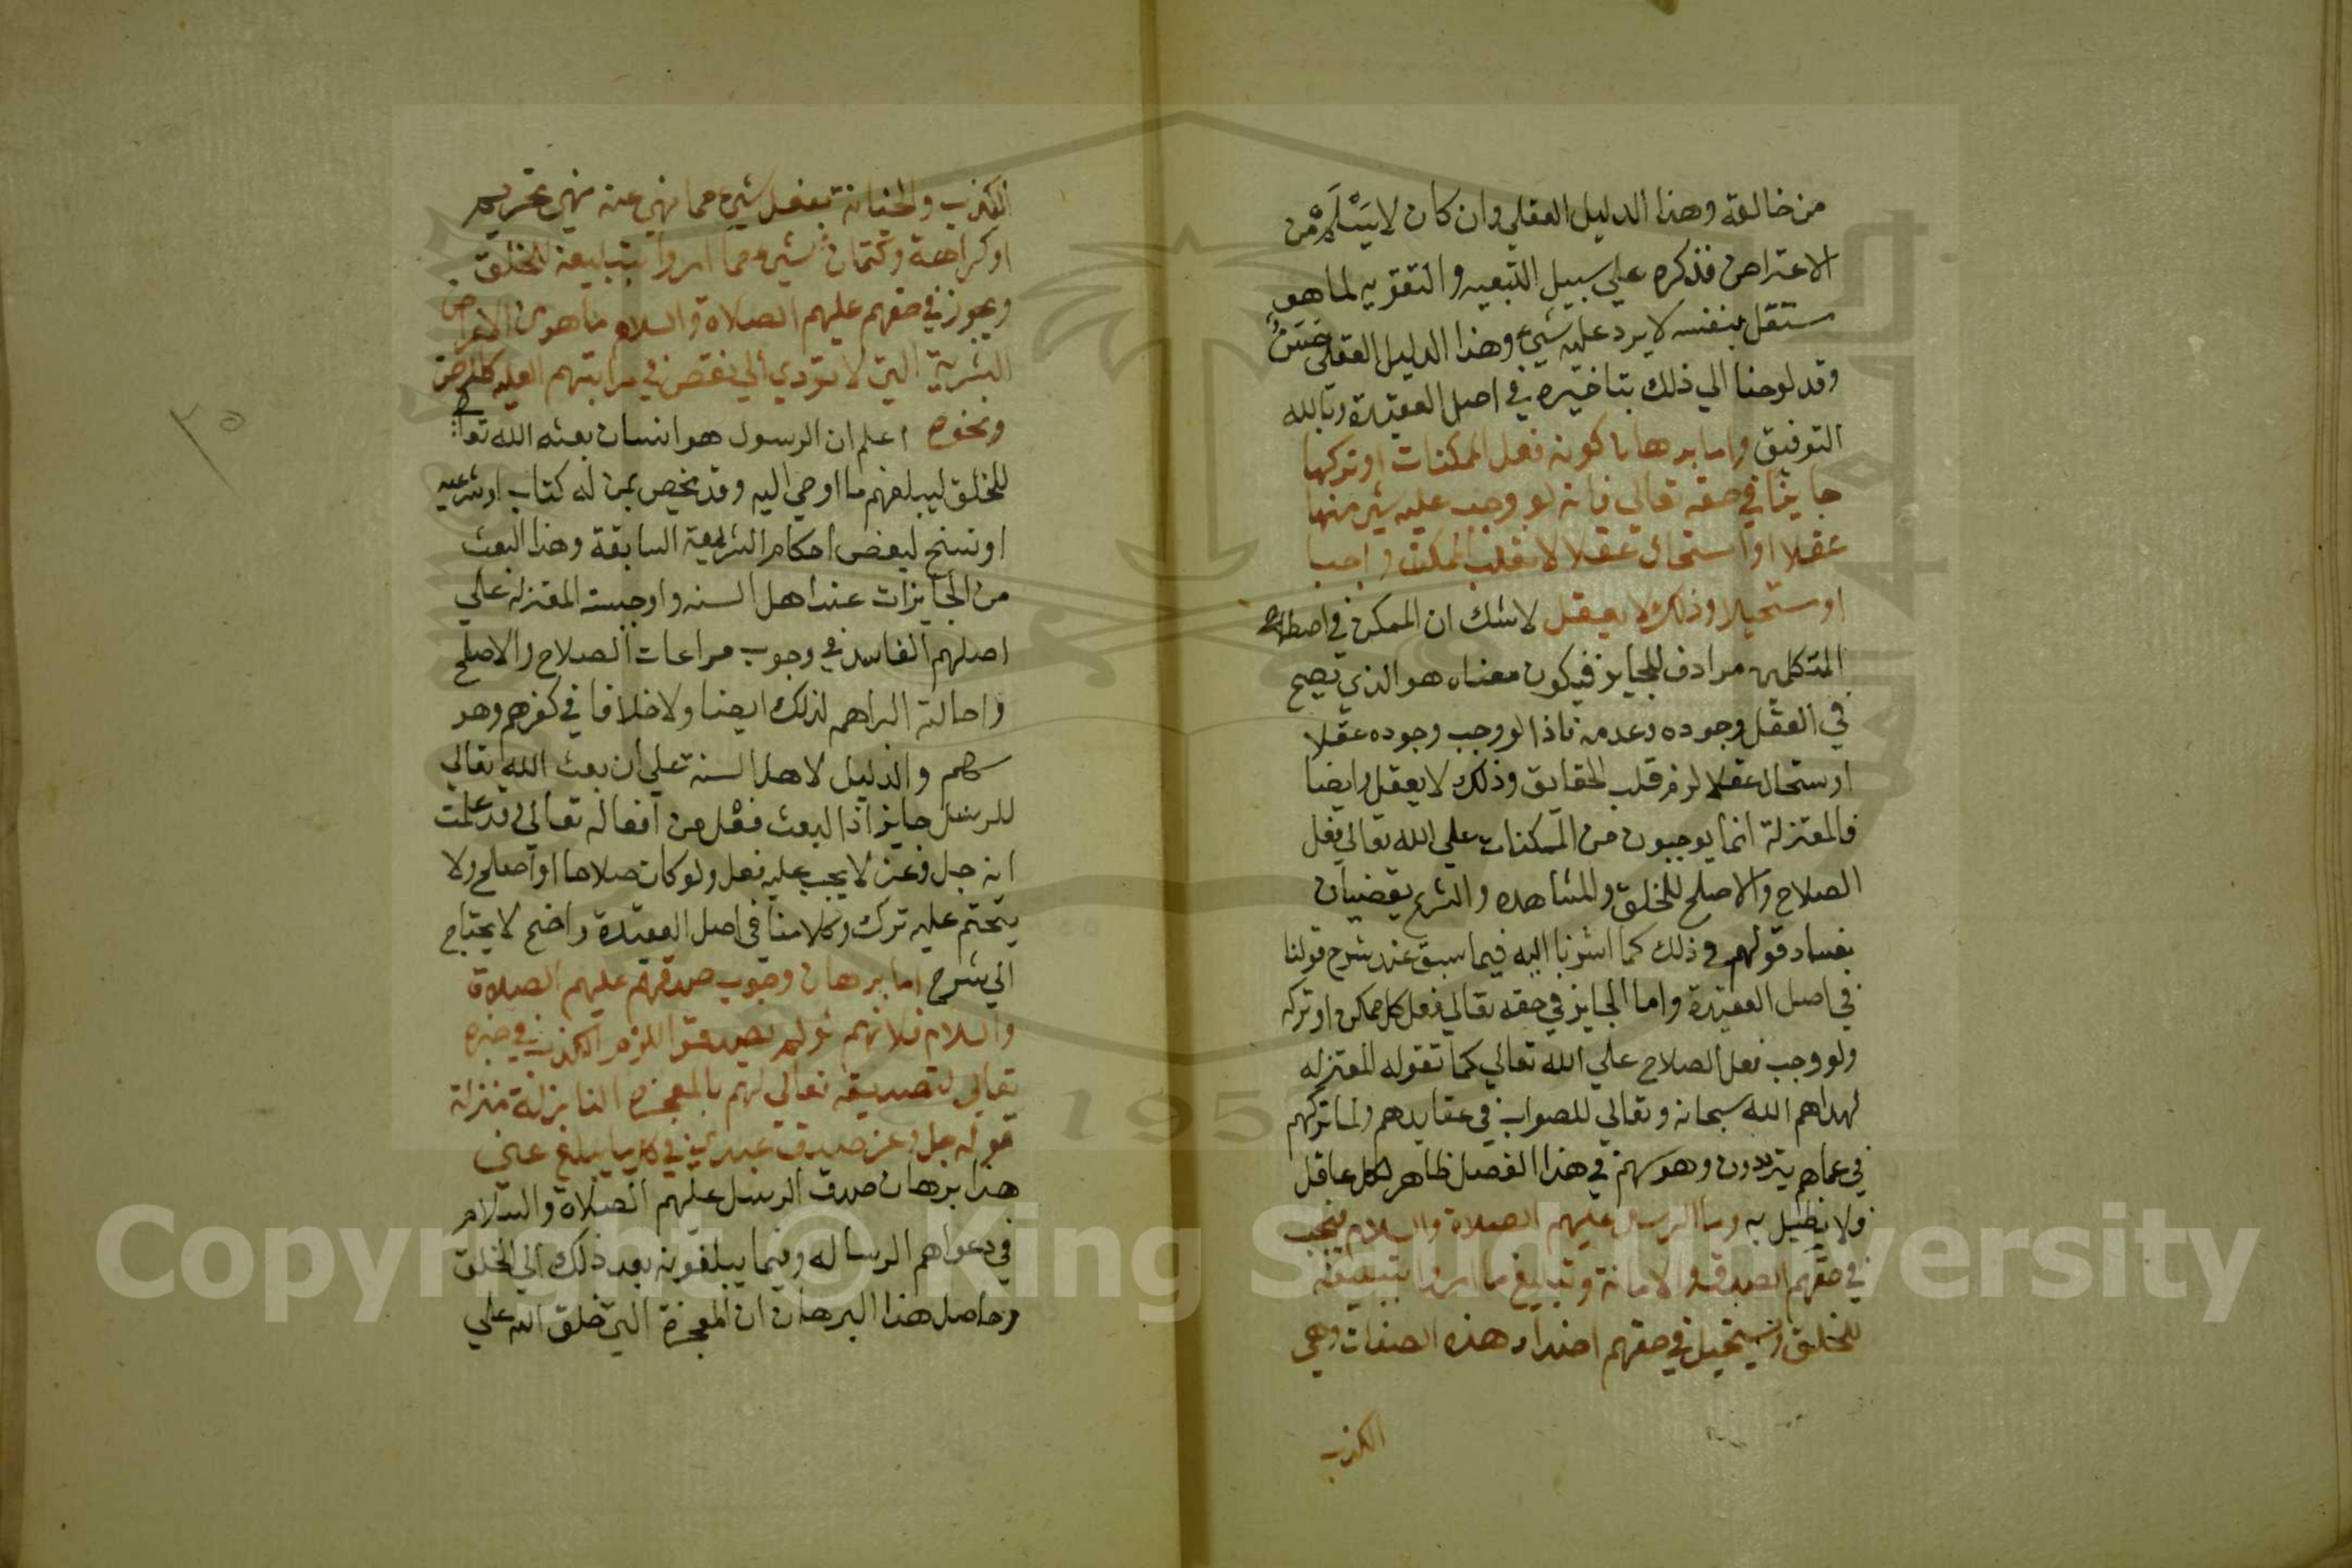 من خالقه وهذا الدليل العقلي وان كان لا يَسْلَمُ من
الاعتراض فذكره علي سبيل التبعيه والتقويه لما هو
مستقل بنفسه لا يرد عليه شيء وهذا الدليل العقلي حَسَنٌ
وقد لوحنا الي ذلك بتاخيره في اصل العقيدة وبالله
التوفيق واما برهان كونه فعل الممكنات او تركها
جايزا في حقه تعالي فانه لو وجب عليه شي منها
عقلا او استحال عقلا لانقلب الممكن واجبا
او مستحيلا وذلك لا يعقل لا شك ان الممكن في اصطلاح
المتكلمين مرادف للجايز فيكون معناه هو الذي يصح
في العقل وجوده وعدمه فاذا لو وجب وجوده عقلا
او ستحال عقلا لزم قلب الحقايق وذلك لا يعقل وايضا
فالمعتزلة انما يوجبون من الممكنات علي الله تعالي فعل
الصلاح والاصلح للخلق والمشاهده والشرع يقضيان
بفساد قولهم في ذلك كما اشرنا اليه فيما سبق عند شرح قولنا
في اصل العقيدة واما الجايز في حقه تعالي ففعل كل ممكن او تركه
ولو وجب فعل الصلاح علي الله تعالي كما تقوله المعتزله
لهداهم الله سبحانه وتعالي للصواب في عقايدهم ولما تركهم
في عماهم يترددون وهوسهم في هذا الفصل ظاهر لكل عاقل
ولا نطيل به واما الرسل عليهم الصلاة والسلام فيجب
في حقهم الصدق والامانة وتبليغ ما امروا بتبليغه
للخلق ويستحيل في حقهم اضداد هذه الصفات وهي
الكذب
الكذب والخيانة بفعل شيء مما نهي عنه نهي تحريم
او كراهة وكتمان شيء مما امروا بتبليغه للخلق
ويجوز في حقهم عليهم الصلاة والسلام ما هو من الاعراض
البشرية التي لا تؤدي الي نقص في مراتبهم العليه كالمرض
ونحوه اعلم ان الرسول هو انسان بعثه الله تعا
للخلق ليبلغهم ما اوحي اليه وقد يخص بمن له كتاب او شرعيه
او نسخ لبعض احكام الشريعة السابقة وهذا البعث
من الجايزات عند اهل السنه واوجبته المعتزلة علي
اصلهم الفاسد في وجوب مراعات الصلاح والاصلح
واحالته البراهمه لذلك ايضا ولا خلافا في كفرهم وهو
سهم والدليل لاهل السنة علي ان بعث الله تعالي
للرسل جايز اذ البعث فعل من افعاله تعالي وقد علمت
انه جل وعز لا يجب عليه فعل ولو كان صلاحا او اصلح ولا
يتحتم عليه ترك وكلامنا في اصل العقيدة واضح لا يحتاج
الي شرح اما برهان وجوب صدقهم عليهم الصلاة
والسلام فلانهم لو لم يصدقوا للزم الكذب في خبره
تعالي لتصديقه تعالي لهم بالمعجزه النازلة منزلة
قوله جل وعز صدق عبدي في كل ما يبلغ عني
هذا برهان صدق الرسل عليهم الصلاة والسلام
في دعواهم الرساله وفيما يبلغونه بعد ذلك الي الخلق
وحاصل هذا البرهان ان المعجزة التي خلق الله علي
٣٥
1957
Copyright © King Saud University